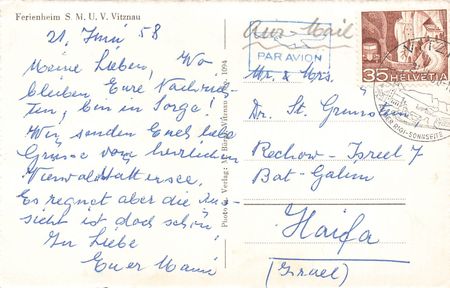 Ferienheim S. M. U. V. Vitznau
21. Juni 58
Meine Lieben, Wo
bleiben Eure Nachrich-
ten, bin in Sorge!
Wir senden Euch liebe
Grüsse vom herrlichen
Vierwaldstättersee.
Es regnet aber die Aus-
sicht ist doch schön!
In Liebe
Euer Mami
Photo- u. Verlag: Vitznau 1094
Air-Mail
PAR AVION
35 HELVETIA
VITZNAU
RIGI-SONNSEITE
Mr. & Mrs.
Dr. St.
Rechow - Israel 7
Bat-Galim
Haifa
(Israel)